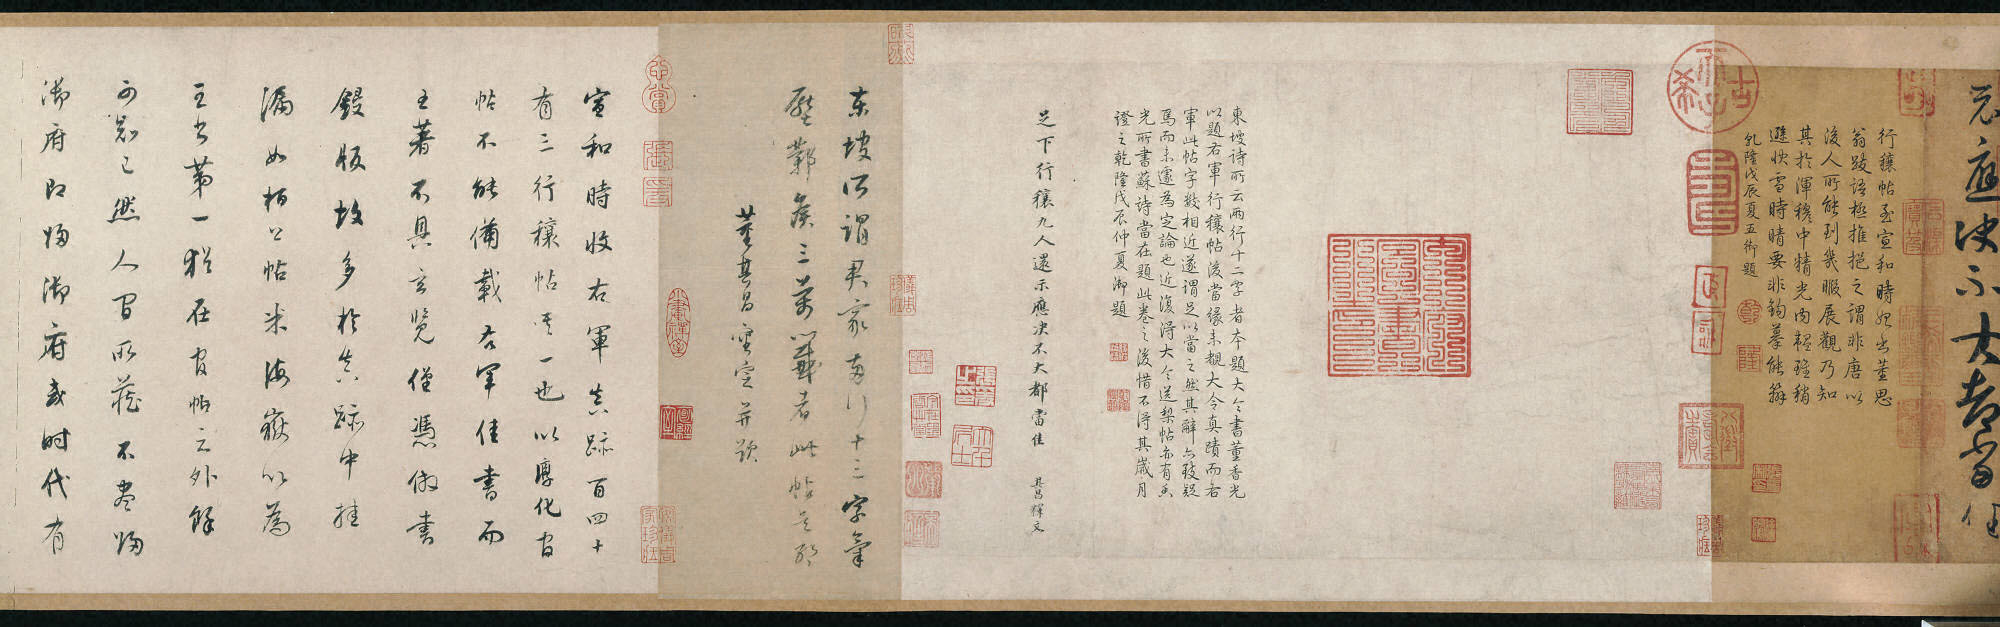 示應決不大都當佳
行穰帖至宣和時始出董思
翁跋語極推挹之謂非唐以
後人所能到幾暇展觀乃知
其於渾穆中精光內韞稍
遜快雪時晴要非鉤摹能辦
乾隆戊辰夏五御題
乾
隆
古希天子
東坡詩所云兩行十二字者本題大令書董香光
以題右軍行穰帖後當緣未覩大令真蹟而右
軍此帖字數相近遂謂足以當之然其辭亦發疑
焉而未遽為定論也近復得大令送梨帖亦有香
光所書蘇詩當在題此卷之後惜不得其歲月
證之乾隆戊辰仲夏御題
足下行穰九人還示應決不大都當佳 其昌釋文
東坡所謂君家兩行十三字氣
壓鄴侯三萬籤者此帖是耶
董其昌審定并題
畫禪室
宣和時收右軍真跡百四十
有三行穰帖其一也以淳化官
帖不能備載右軍佳書而
王著不具玄覽僅憑仿書
鋟版故多於真跡中挂
漏如桓公帖米海嶽以為
王書第一猶在官帖之外餘
可知已然人間所藏不盡歸
御府即歸御府或時代有